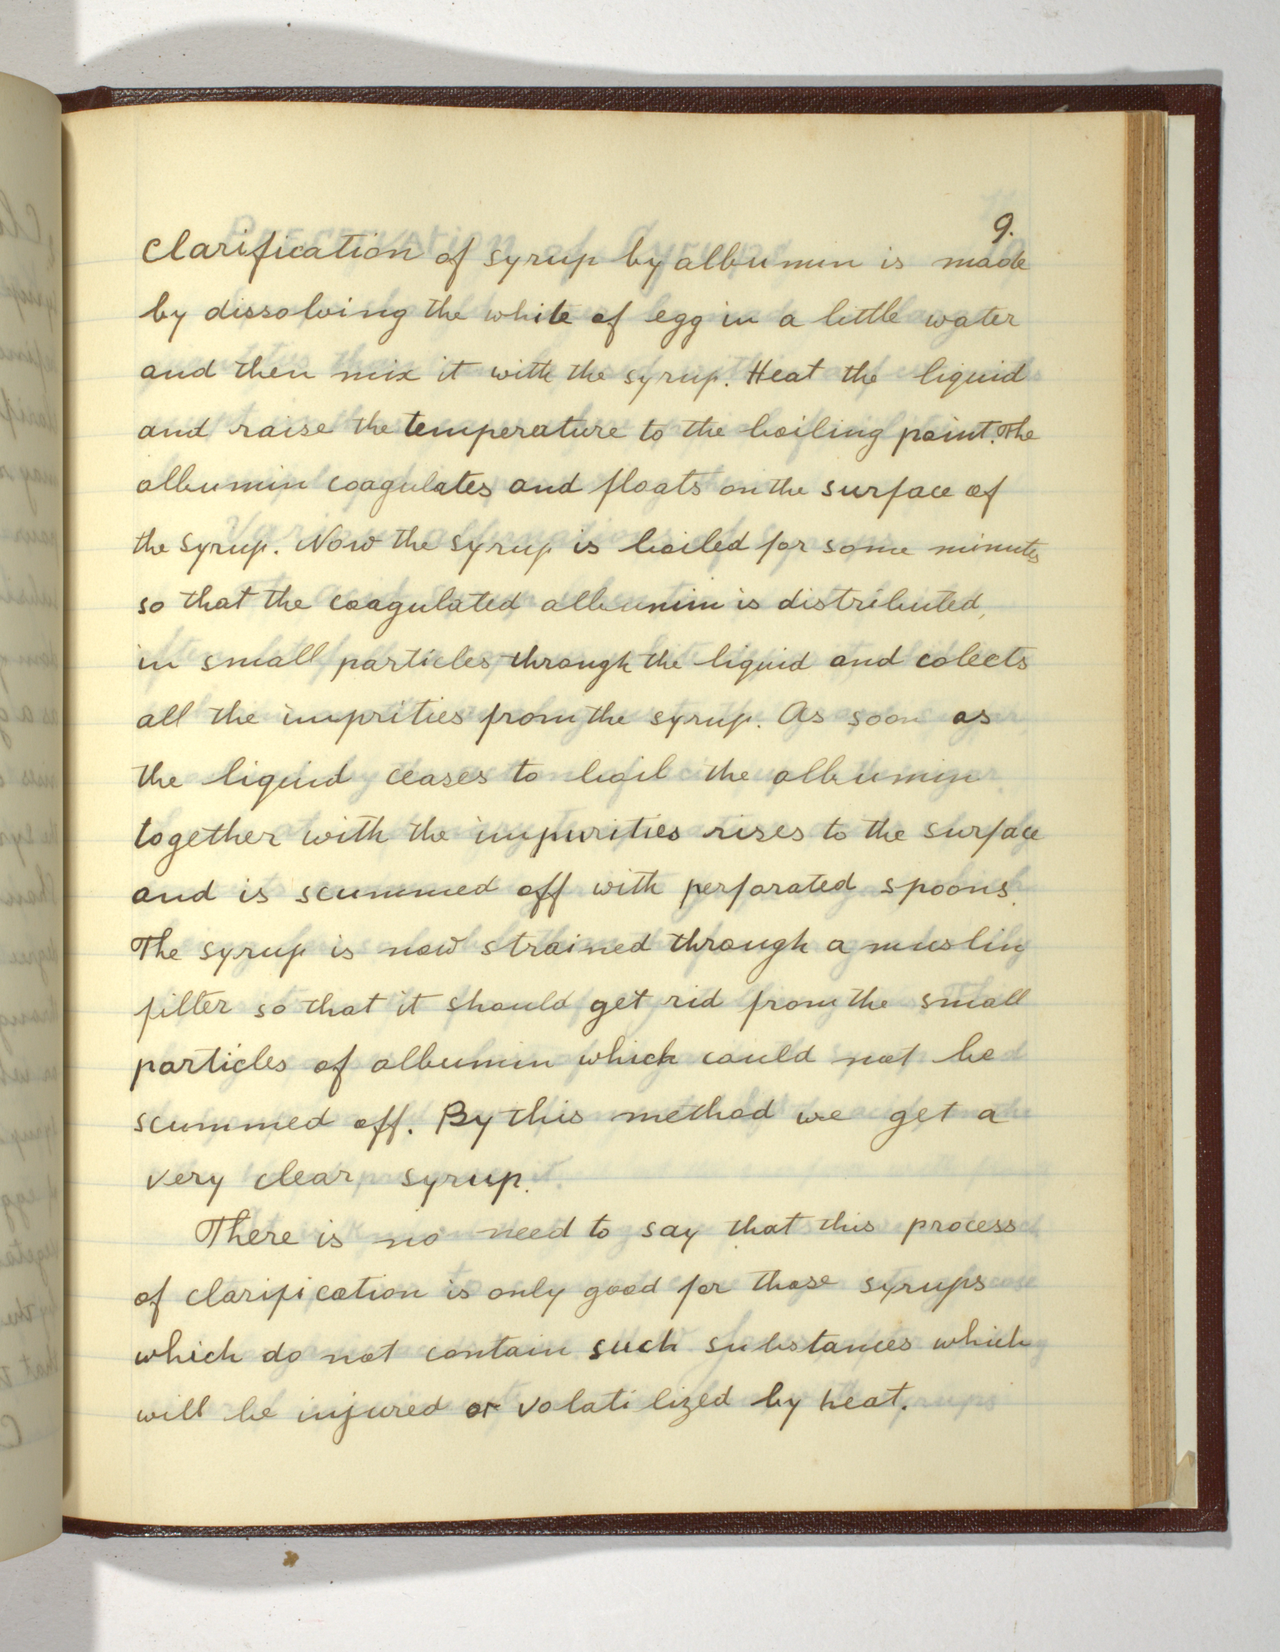 9.
Clarification of syrup by albumin is made
by dissolving the white of egg in a little water
and then mix it with the syrup. Heat the liquid
and raise the temperature to the boiling point. The
albumin coagulates and floats on the surface of
the syrup. Now the syrup is boiled for some minutes
so that the coagulated albumin is distributed
in small particles through the liquid and colects
all the imprities from the syrup. As soon as
the liquid ceases to boil the albumin
together with the impurities rises to the surface
and is scummed off with perforated spoons.
The syrup is now strained through a muslin
filter so that it should get rid from the small
particles of albumin which could not be
scummed off. By this method we get a
very clear syrup.
There is no need to say that this process
of clarification is only good for those syrups
which do not contain such substances which
will be injured or volatilized by heat.